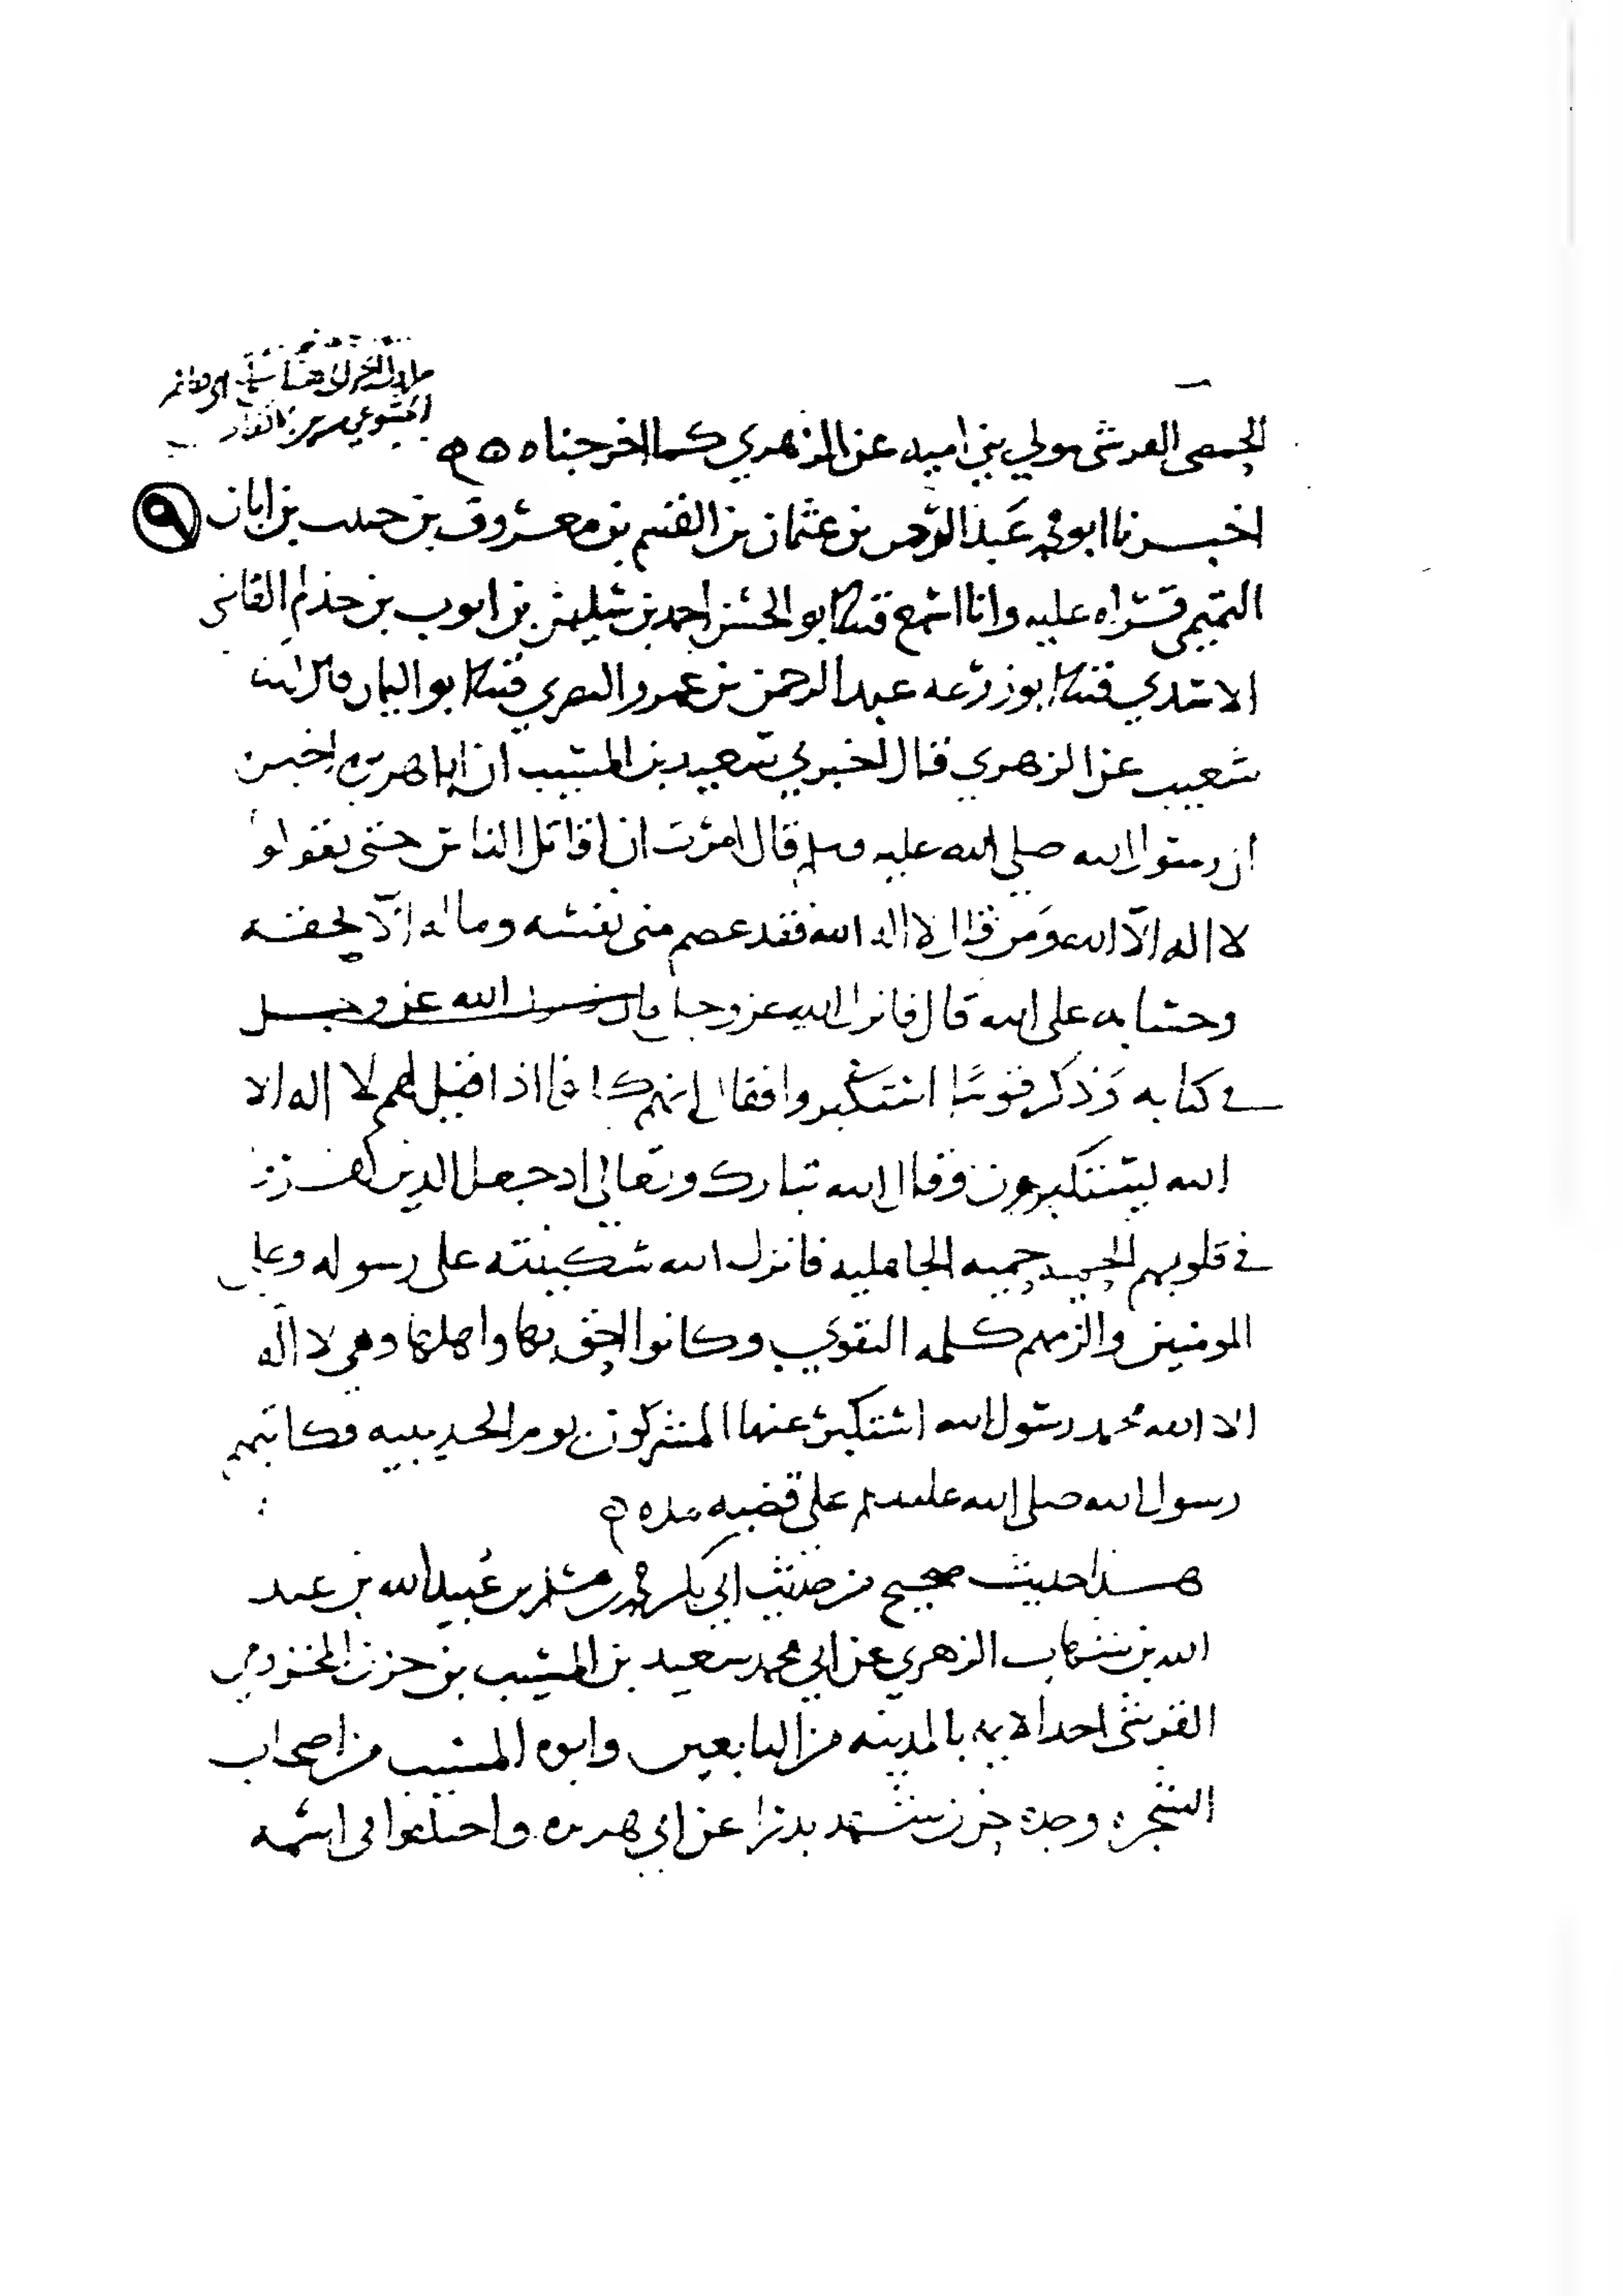 الحمصي القرشي مولي بني اميه عن الزهري كما اخرجناه
اخبرنا ابو محمد عبد الرحمن بن عثمان بن القسم بن معروف بن حبيب بن ابان
التميمي قراه عليه وانا اسمع ابو الحسن احمد بن سليمن بن ايوب بن حذلم القاضي
الاسدي ابو زرعه عبد الرحمن بن عمرو النصري ابو اليمان قال
شعيب عن الزهري قال اخبرني سعيد بن المسيب ان ابا هريره اخبره
ان رسول الله صلي الله عليه وسلم قال امرت ان اقاتل الناس حتى يقولوا
لا اله الا الله ومن قال لا اله الا الله فقد عصم مني نفسه وماله الا بحقه
وحسابه على الله قال فانزل الله عز وجل الله عز وجل
في كتابه وذكر قوما استكبروا فقال انهم كانوا اذا قيل لهم لا اله الا
الله يستكبرون وقال الله تبارك وتعالى اذ جعل الذين كفروا
في قلوبهم الحميه حميه الجاهليه فانزل الله سكينته على رسوله وعلى
المومنين والزمهم كلمه التقوي وكانوا احق بها واهلها وهي لا اله
الا الله محمد رسول الله استكبر عنها المشركون يوم الحديبيه وكاتبهم
رسول الله صلى الله عليه وسلم على قضيه مده
هذا حديث صحيح من حديث ابي بكر محمد بن مسلم بن عبيد الله بن عبد
الله بن شهاب الزهري عن ابي محمد سعيد بن المسيب بن حزن المخزومي
القرشي احد الايمه بالمدينه من التابعين وابوه المسيب من اصحاب
الشجره وجده حزن شهد بدرا عن ابي هريره واختلفوا في اسمه